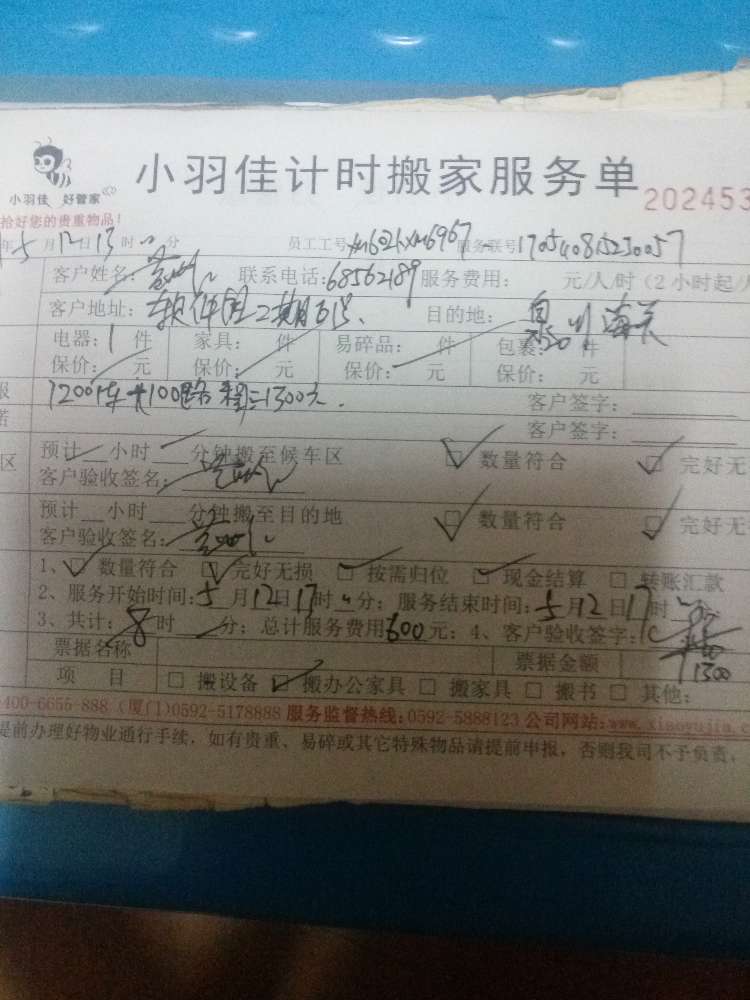 小羽佳计时搬家服务单 202453
小羽佳 好管家
拾好您的贵重物品！
年5月12日13时 分 员工工号xm6021xm6967 服务联号170540815230057
客户姓名： 联系电话:68562189 服务费用： 元/人/时（2小时起/
客户地址： 软件园二期 目的地： 泉州海关
电器：1件 家具： 件 易碎品： 件 包装： 件
保价： 元 保价： 元 保价： 元 保价： 元
12001车+100路程=1300元. 客户签字：
客户签字：
区 预计 小时 分钟搬至候车区 数量符合 完好无
客户验收签名：
预计 小时 分钟搬至目的地 数量符合 完好无
客户验收签名：
1、 数量符合 完好无损 按需归位 现金结算 转账汇款
2、服务开始时间：5月12日 时 分；服务结束时间：5月12日17时
3、共计：8时 分；总计服务费用600元；4、客户验收签字：
1300
票据名称 票据金额
项 目 搬设备 搬办公家具 搬家具 搬书 其他：
400-6655-888（厦门）0592-5178888 服务监督热线：0592-5888123 公司网站：www.xiaoyujia.c
是前办理好物业通行手续，如有贵重、易碎或其它特殊物品请提前申报，否则我司不予负责，